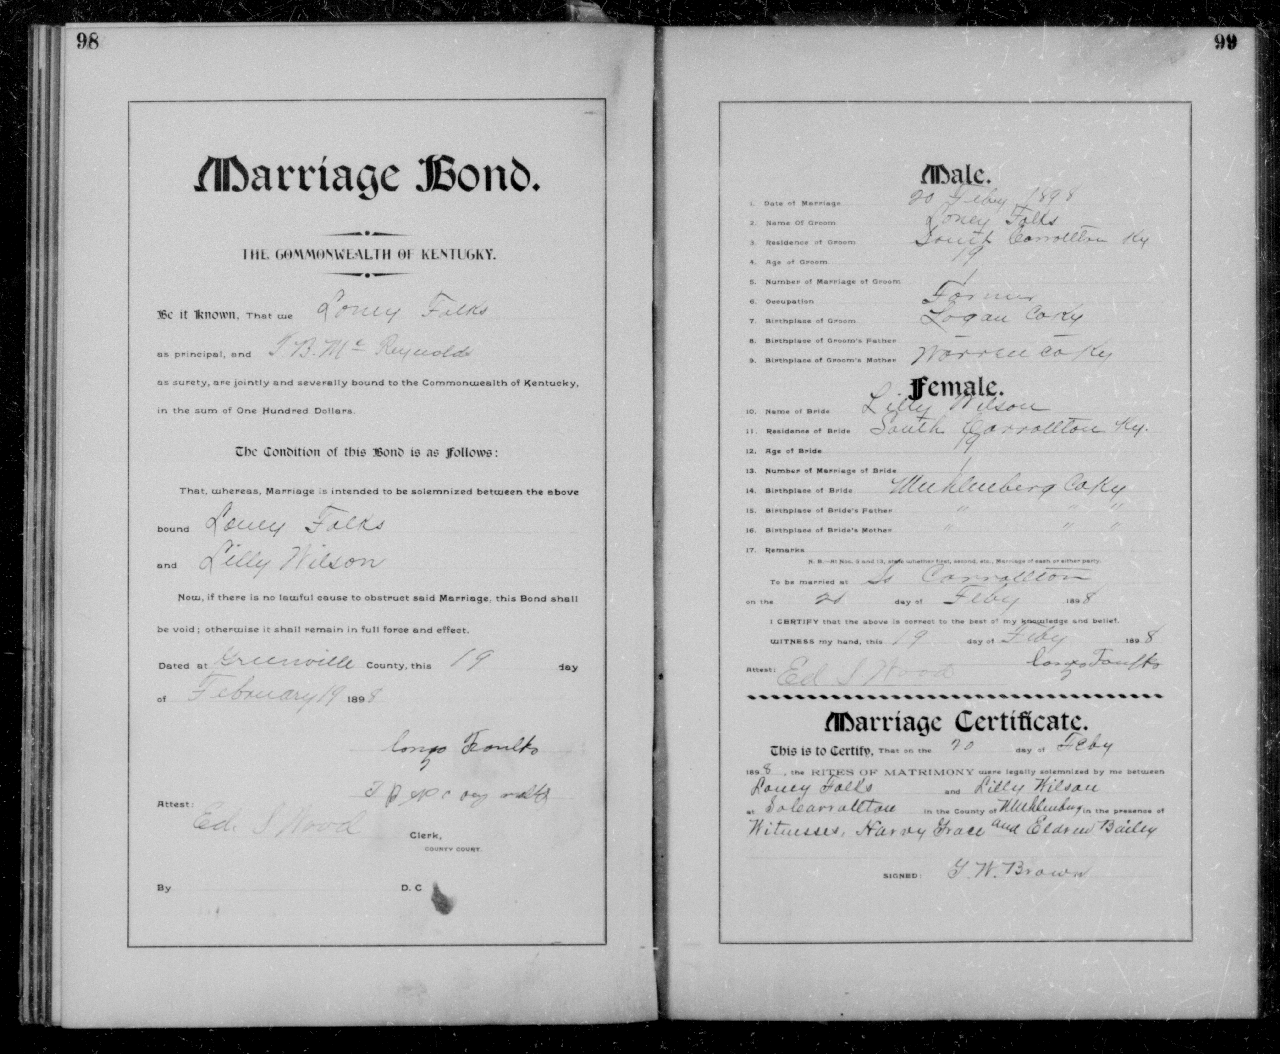 98
Marriage Bond.
THE COMMONWEALTH OF KENTUCKY.
Be it Known, That we Loney Folks
as principal, and T. B. Mc Reynolds
as surety, are jointly and severally bound to the Commonwealth of Kentucky,
in the sum of One Hundred Dollars.
The Condition of this Bond is as Follows:
That, whereas, Marriage is intended to be solemnized between the above
bound Loney Folks
and Lilly Wilson
Now, if there is no lawful cause to obstruct said Marriage, this Bond shall
be void; otherwise it shall remain in full force and effect.
Dated at Greenville County, this 19 day
of February 19 1898
Attest:
Ed. S Wood Clerk,
COUNTY COURT.
By D. C
99
Male.
1. Date of Marriage 20 Feby 1898
2. Name Of Groom Loney Folks
3. Residence of Groom South Carrollton Ky
4. Age of Groom 19
5. Number of Marriage of Groom 1
6. Occupation Farmer
7. Birthplace of Groom Logan Co Ky
8. Birthplace of Groom's Father
9. Birthplace of Groom's Mother Warren Co Ky
Female.
10. Name of Bride Lilly Wilson
11. Residence of Bride South Carrollton Ky.
12. Age of Bride 19
13. Number of Marriage of Bride 1
14. Birthplace of Bride Muhlenberg Co Ky
15. Birthplace of Bride's Father " " "
16. Birthplace of Bride's Mother " " "
17. Remarks
N. B.—At Nos. 5 and 13, state whether first, second, etc., Marriage of each or either party.
To be married at So Carrollton
on the 20 day of Feby 1898
I CERTIFY that the above is correct to the best of my knowledge and belief.
WITNESS my hand, this 19 day of Feby 1898
Attest: Ed S Wood
Marriage Certificate.
This is to Certify, That on the 20 day of Feby
1898, the RITES OF MATRIMONY were legally solemnized by me between
Loney Folks and Lilly Wilson
at So Carrollton in the County of Muhlenberg in the presence of
Witnesses, Harvy Grace and Eldred Bailey
SIGNED: G. W. Brown